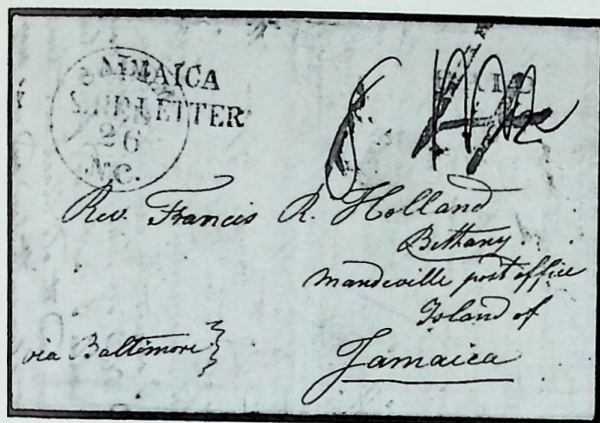 JAMAICA
SHIP LETTER
26
N.C.
8
Rev. Francis R. Holland
Bethany.
Mandeville post office
Island of
Jamaica
via Baltimore